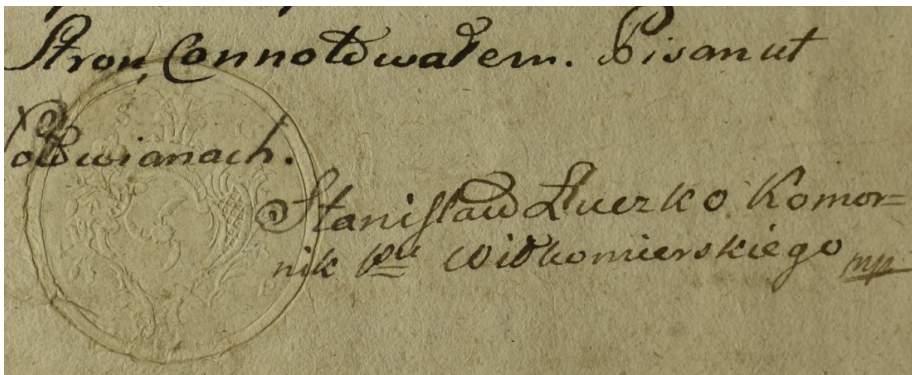 Stron Connotowałem. Pisan ut
Stanisław Łuczko Komor=
nik Pttu Wiłkomierskiego mp